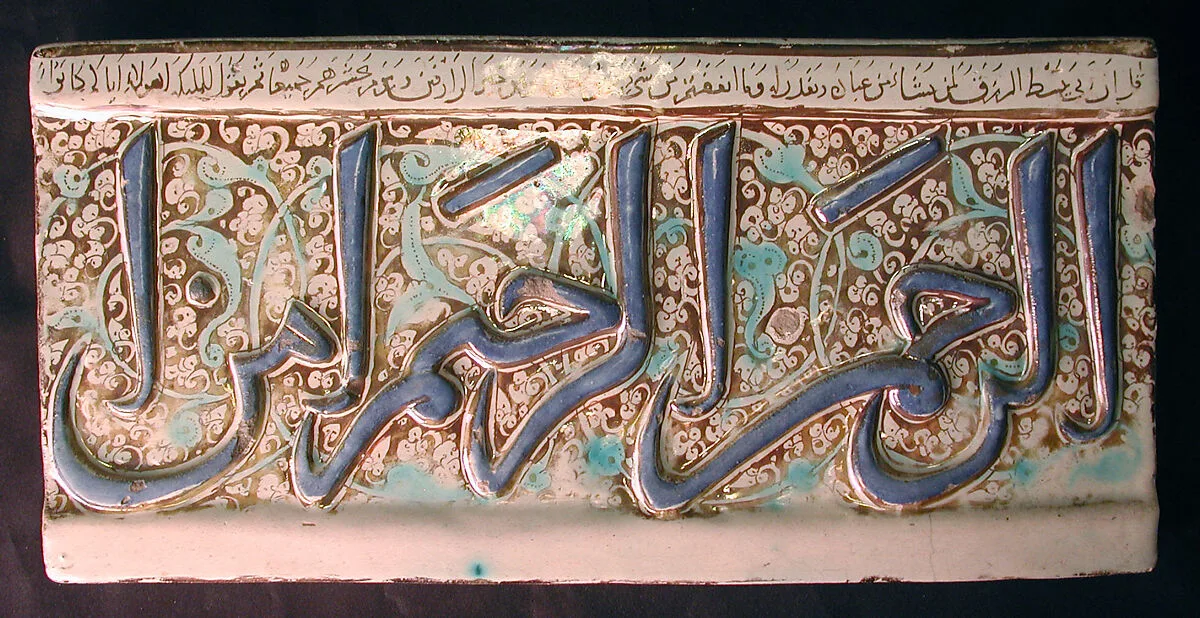 قل ان ربي يبسط الرزق لمن يشاء من عباده ويقدر له وما انفقتم من شي الرازقين ويوم يحشرهم جميعا ثم يقول للملئكة اهولاء اياكم كانوا
الرحمن الرحيم ان ا